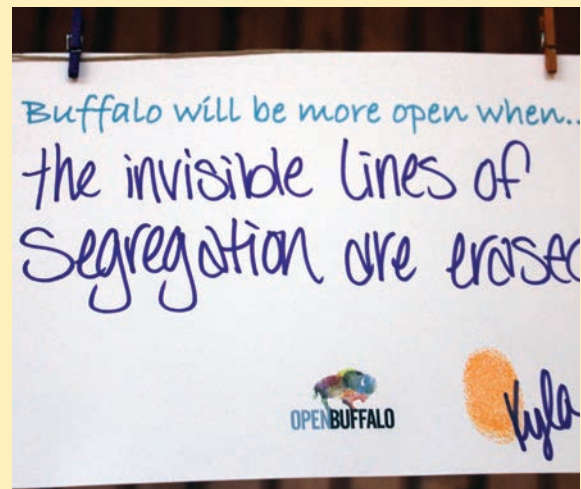 Buffalo will be more open when..
the invisible lines of
segregation are erased
OPENBUFFALO
Kyla